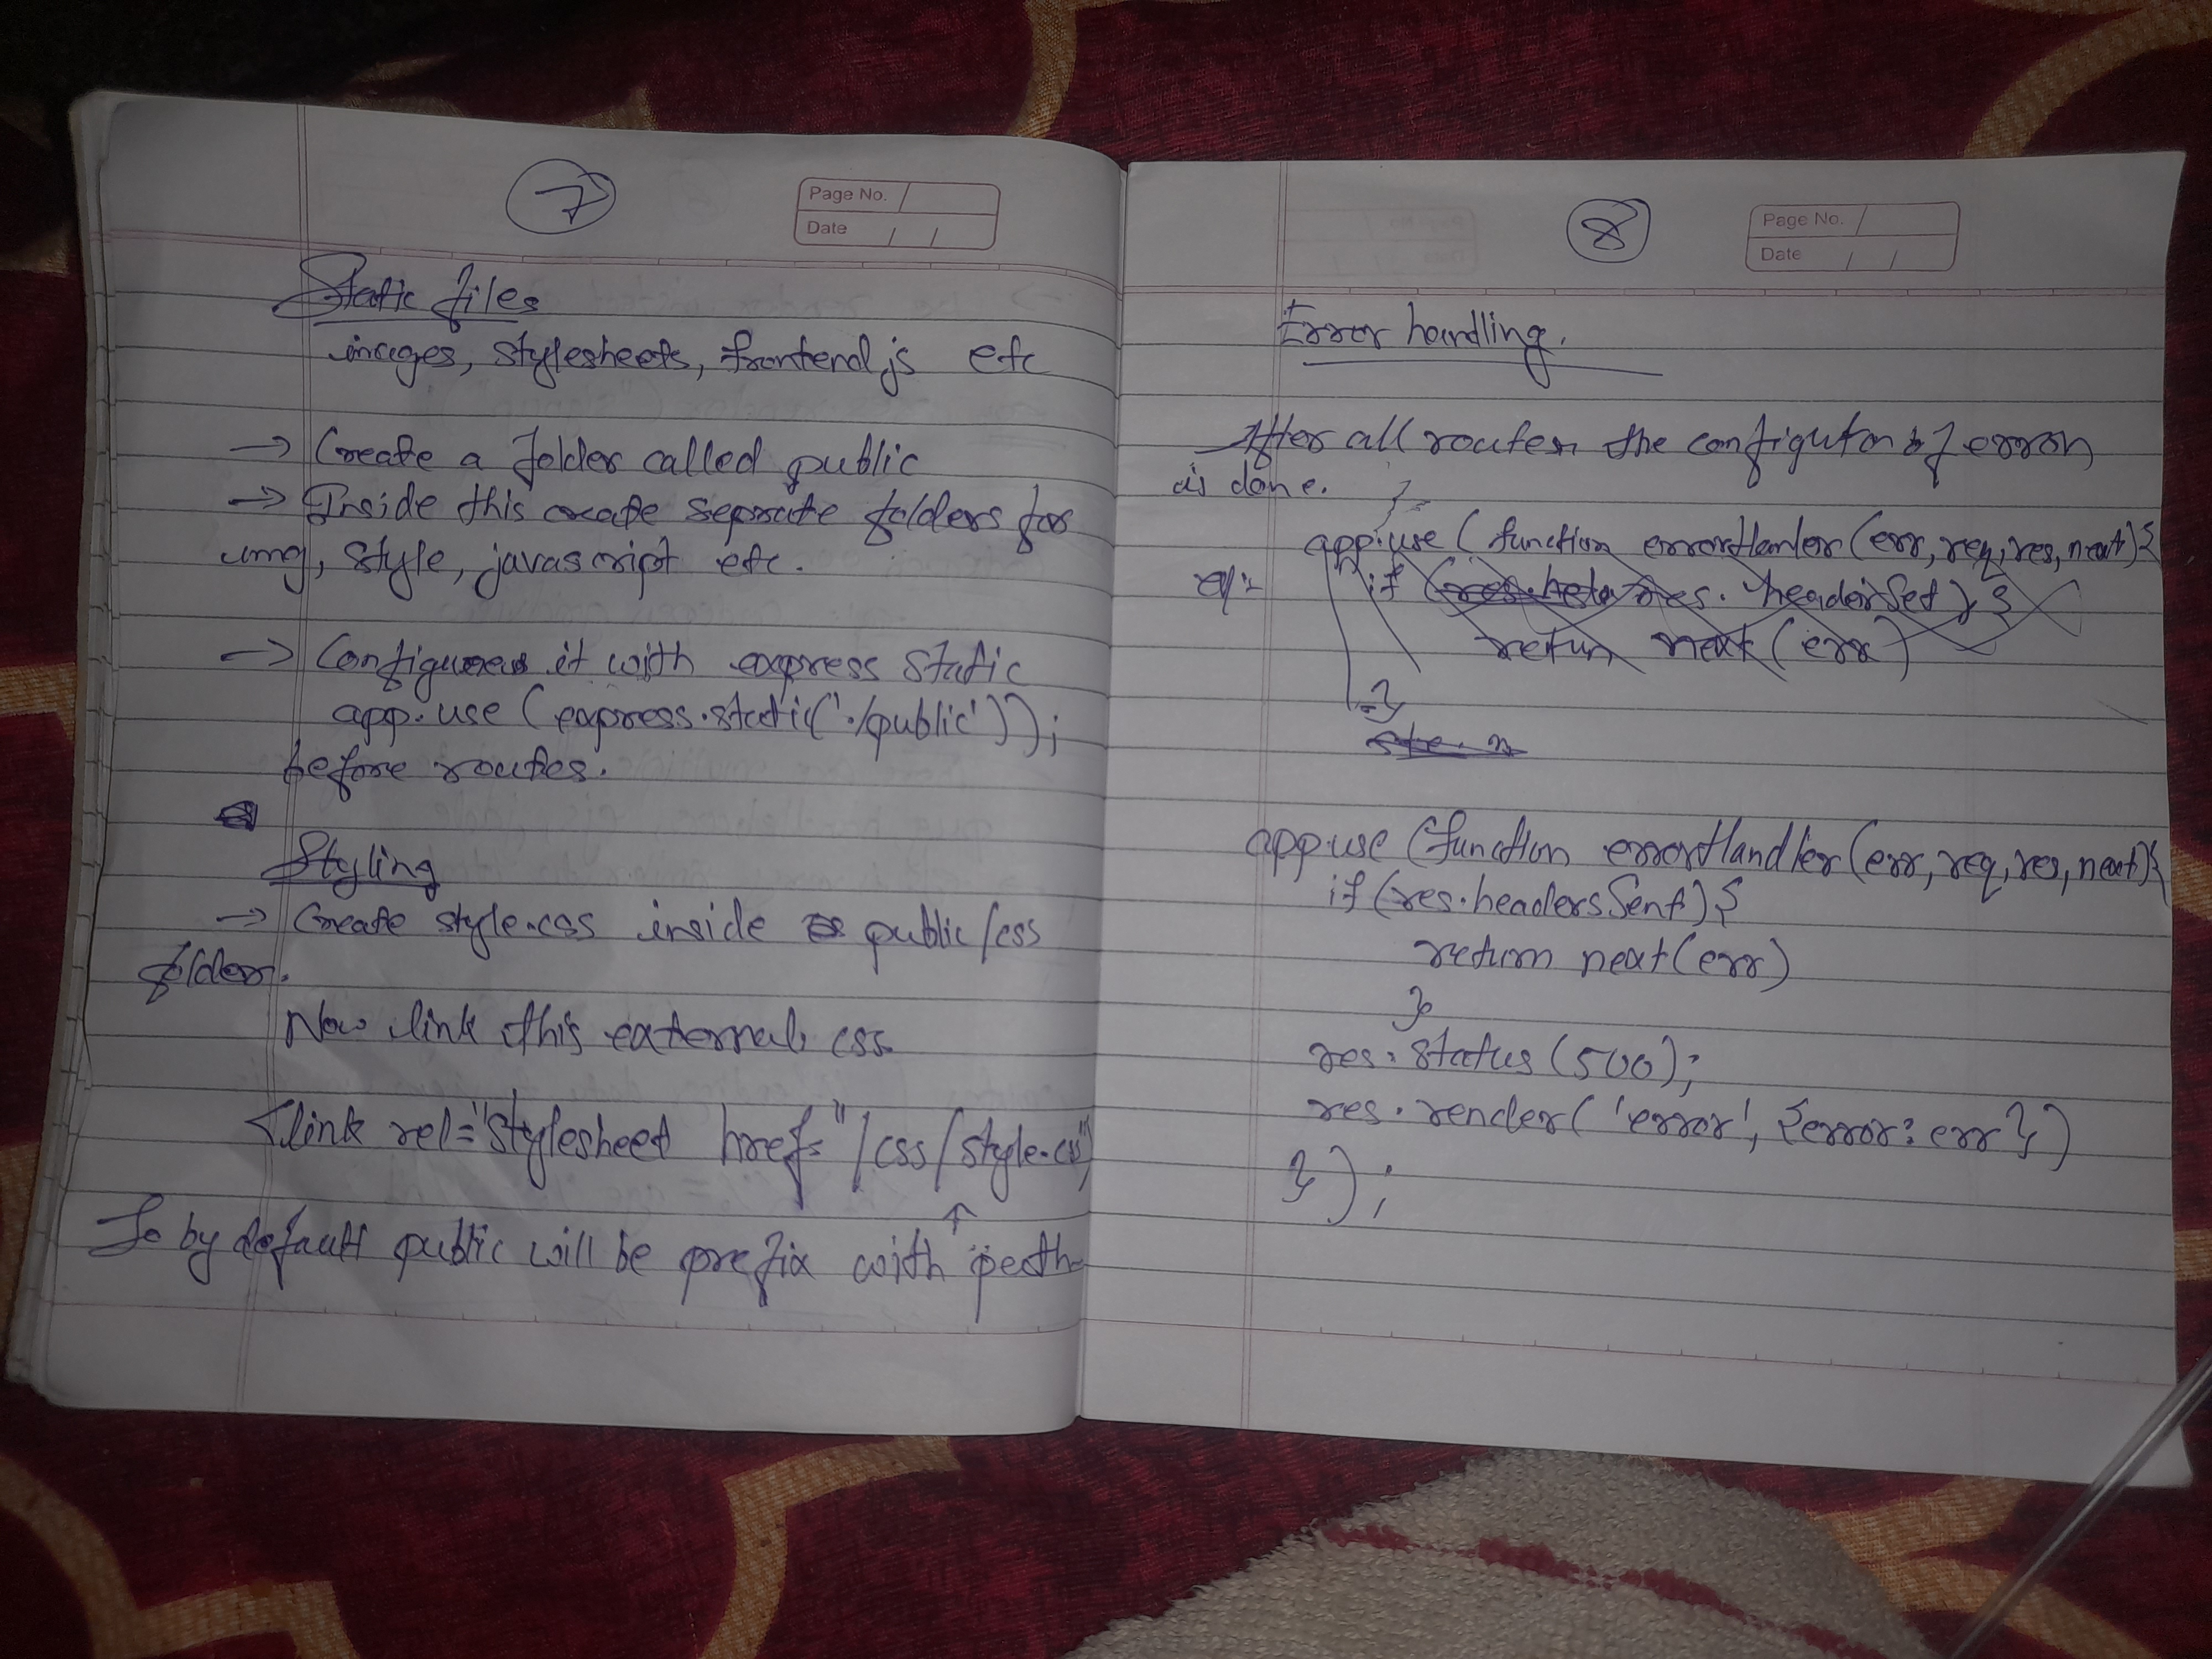 7
Page No.
Date / /
Static files
images, stylesheets, frontend js etc
→ Create a folder called public
→ Inside this create seprate folders for
img, style, javascript etc.
→ Configure it with express static
app.use (express.static('./public'));
before routes.
Styling
→ Create style.css inside public/css
folder.
Now link this external css.
<link rel="stylesheet href="/css/style.css"
↑
So by default public will be prefix with path
8
Page No.
Date / /
Error handling.
After all routes the of error
is done.
app.use (function (err, req, res, next){
eg:- if ( res. headerSet ) {
return next (err)
}
app.use (function errorHandler (err, req, res, next){
if (res.headersSent) {
return next (err)
}
res.status (500);
res.render( 'error', {error: err})
});